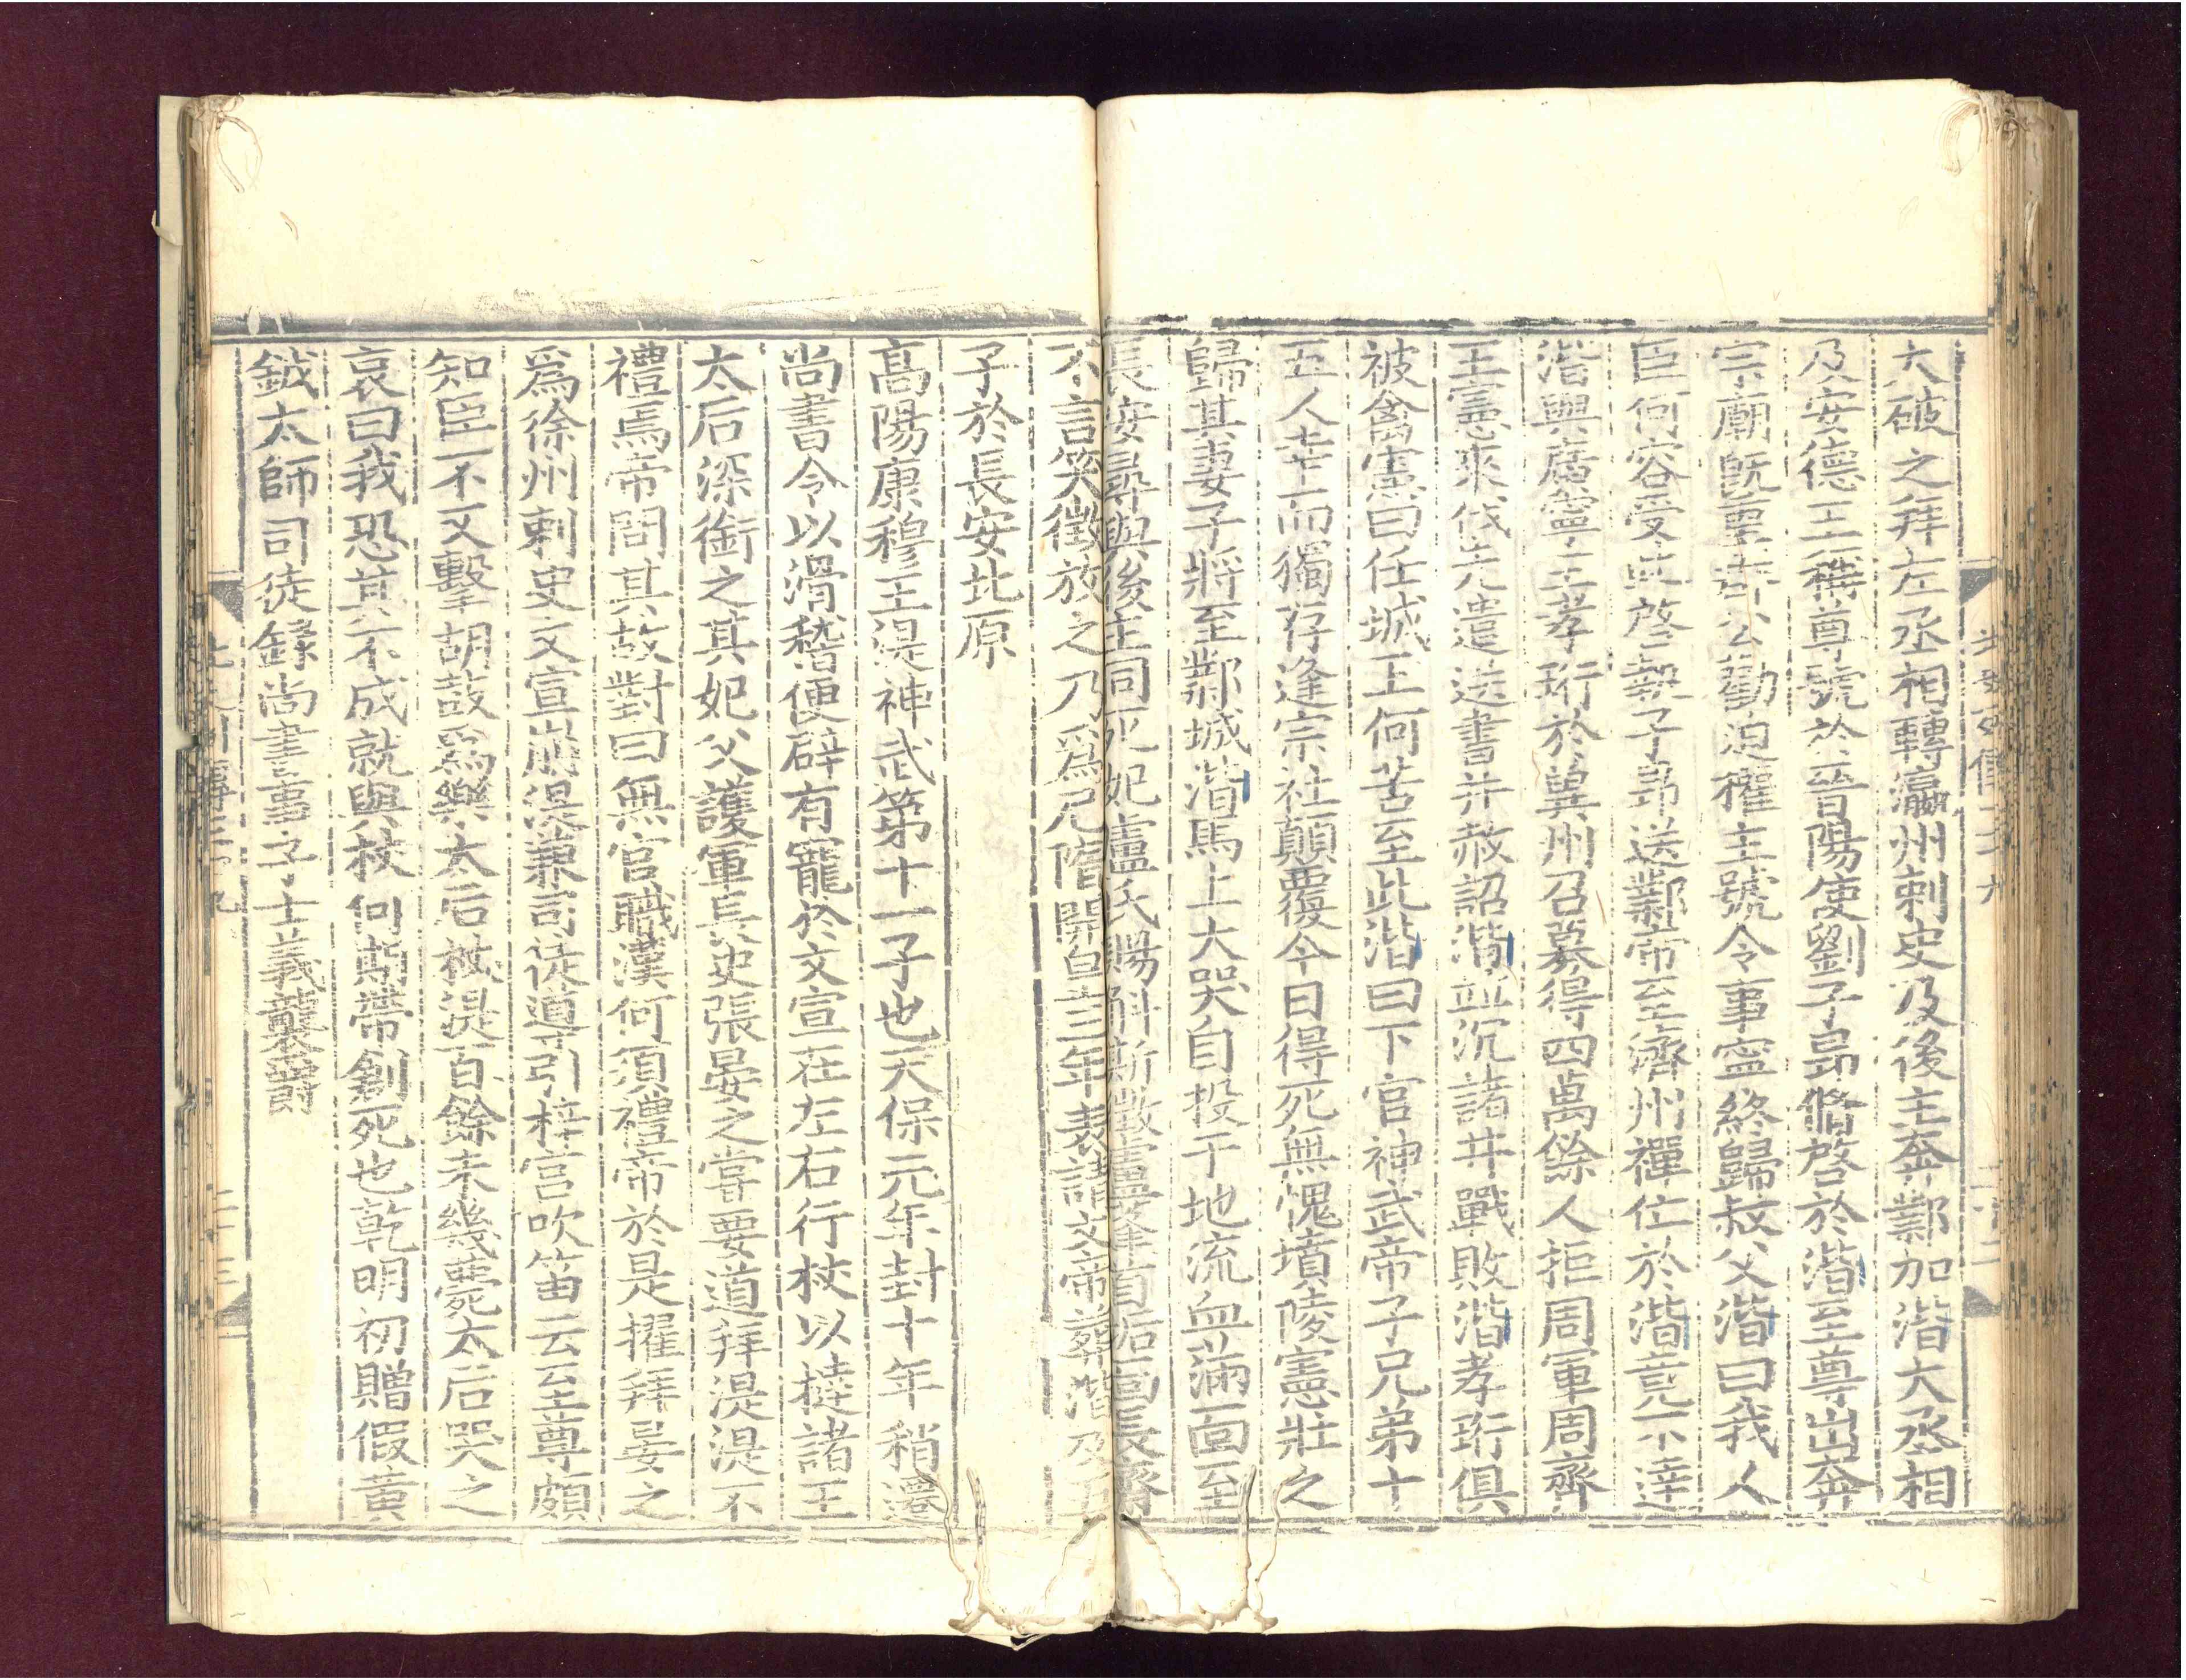 大破之拜左丞相轉瀛州刺史及後主奔鄴加湝大丞相
及安德王稱尊號於晉陽使劉子昂脩啓於湝至尊出奔
宗廟旣重羣公勸迫權主號令事寧終歸叔父湝曰我人
臣何容受此啓執子昂送鄴帝至濟州禪位於湝竟不達
湝與廣寧王孝珩於冀州召募得四萬餘人拒周軍周齊
王憲來伐先遣送書并赦詔湝並沉諸井戰敗湝孝珩俱
被禽憲曰任城王何苦至此湝曰下官神武帝子兄弟十
五人幸而獨存逢宗社顛覆今日得死無愧墳陵憲壯之
歸其妻子將至鄴城湝馬上大哭自投于地流血滿面至
長安尋與後主同死妃盧氏賜斛斯徵盧蓬首垢面長齋
不言笑徵放之乃爲尼隋開皇三年表請文帝葬湝及五
子於長安北原
高陽康穆王湜神武第十一子也天保元年封十年稍遷
尚書令以滑稽便辟有寵於文宣在左右行杖以撻諸王
太后深銜之其妃父護軍長史張晏之嘗要道拜湜湜不
禮焉帝問其故對曰無官職漢何須禮帝於是擢拜晏之
爲徐州刺史文宣崩湜兼司徒導引梓宮吹笛云至尊頗
知臣不又擊胡鼓爲樂太后杖湜百餘未幾薨太后哭之
哀曰我恐其不成就與杖何期帶創死也乾明初贈假黃
鉞太師司徒錄尚書事子士義襲爵